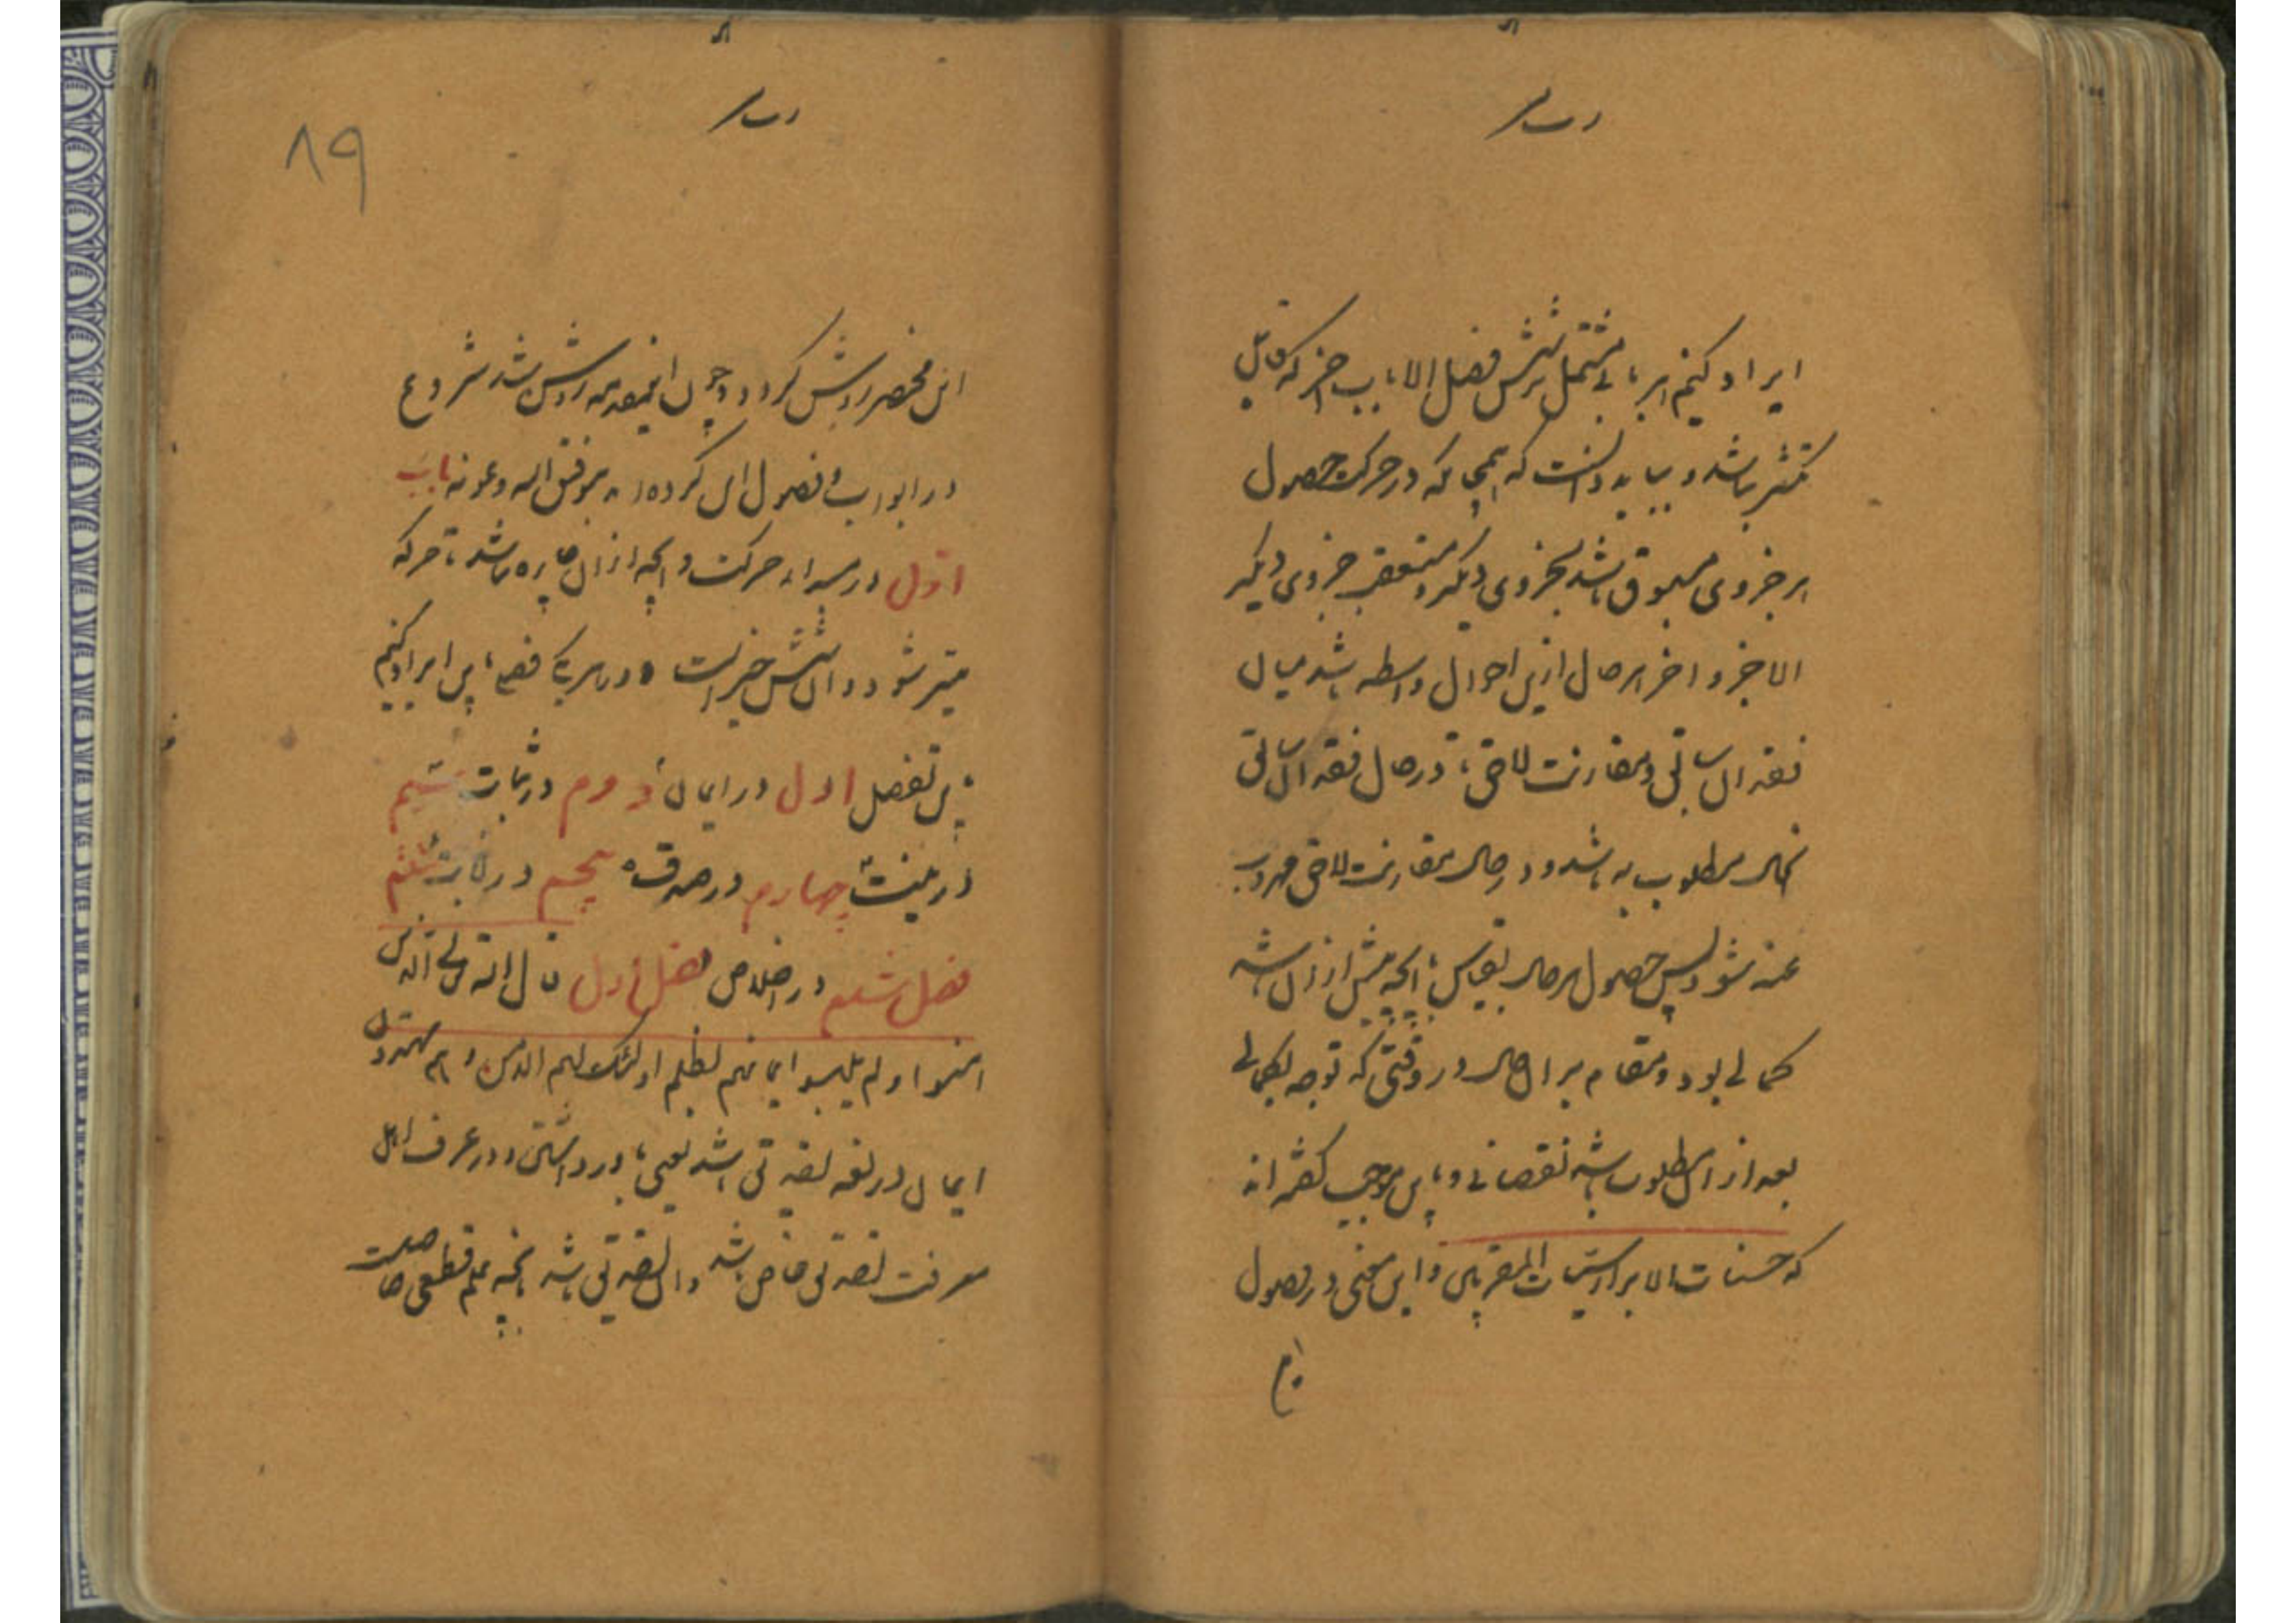 ایراد کنیم هر بابی مشتمل بر شش فصل الا باب اخر که قابل
تکثر نباشد و بباید دانست که همچنانکه در حرکت حصول
هر جزوی مسبوق باشد بجزوی دیگر و متعقب جزوی دیگر
الا جزو اخر هر حال ازین احوال واسطه باشد میان
فقدان سابق و مقارنت لاحق تا در حال فقدان سابق
انحال مطلوب به باشد و در حال مقارنت لاحق مهروب
عنه شود پس حصول هر حال بقیاس باانچه پیش ازان باشد
کمالی بود و مقام بر انحال در وقتی که توجه بکمالی
بعد ازان مطلوب باشد نقصانی و باین موجب گفته اند
که حسنات الابرار سیئات المقربین و این معنی در فصول
این
این مختصر روشن گردد و چون این مقدمه روشن شد شروع
در ابواب و فصول ان کرده اید بتوفیق الله و عونه باب
اول در مبداء حرکت و انچه ازان چاره نباشد تا حرکه
میسر شود و ان شش چیزاست و در هر یکی فصلی باین ایراد کنیم
باین تفصیل اول در ایمان دوم در ثبات سیم
در نیت چهارم در صدق پنجم در انابت ششم
فصل ششم در اخلاص فصل اول قال الله تعالی الذین
امنوا و لم یلبسوا ایمانهم بظلم اولئک لهم الامن و هم مهتدون
ایمان در لغه تصدیق باشد یعنی باور داشتن و در عرف اهل
معرفت تصدیق خاص باشد و ان تصدیق باشد بانچه علم قطعی حاصلست
۸۹